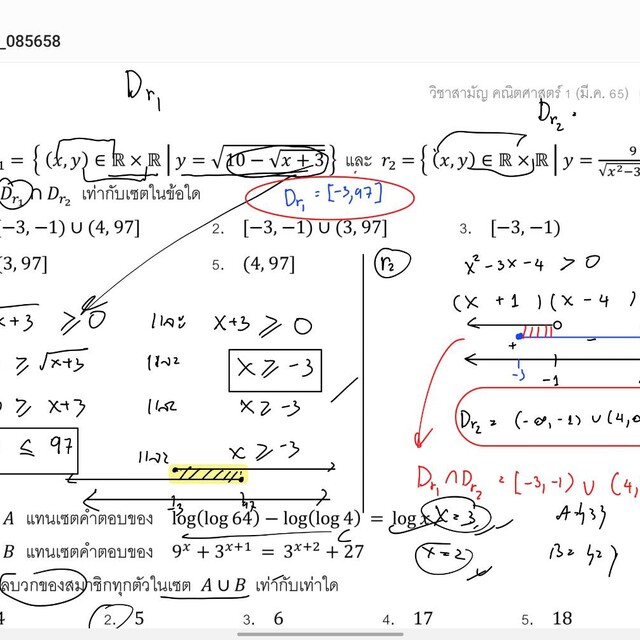 _085658
D r₁
วิชาสามัญ คณิตศาสตร์ 1 (มี.ค. 65)
D r₂ :
₁ = { (x, y) ∈ ℝ × ℝ | y = √(10 − √(x + 3)) } และ r₂ = { (x, y) ∈ ℝ × ℝ | y = 9/√(x² − 3
D r₁ ∩ D r₂ เท่ากับเซตในข้อใด
D r₁ = [-3, 97]
−3, −1) ∪ (4, 97] 2. [−3, −1) ∪ (3, 97] 3. [−3, −1)
(3, 97] 5. (4, 97]
r₂
x² - 3x - 4 > 0
x+3 ≥ 0 และ x+3 ≥ 0
(x + 1)(x - 4)
+ −
≥ √(x+3) และ x ≥ -3
-3 -1
≥ x+3 และ x ≥ -3
D r₂ = (-∞, -1) ∪ (4,
≤ 97 และ x ≥ -3
D r₁ ∩ D r₂ = [-3, -1) ∪ (4,
-3 97
A แทนเซตคำตอบของ log(log 64) − log(log 4) = log x x = 3 A = {3}
B แทนเซตคำตอบของ 9ˣ + 3ˣ⁺¹ = 3ˣ⁺² + 27 x = 2 B = {2}
ลบวกของสมาชิกทุกตัวในเซต A ∪ B เท่ากับเท่าใด
4 2. 5 3. 6 4. 17 5. 18